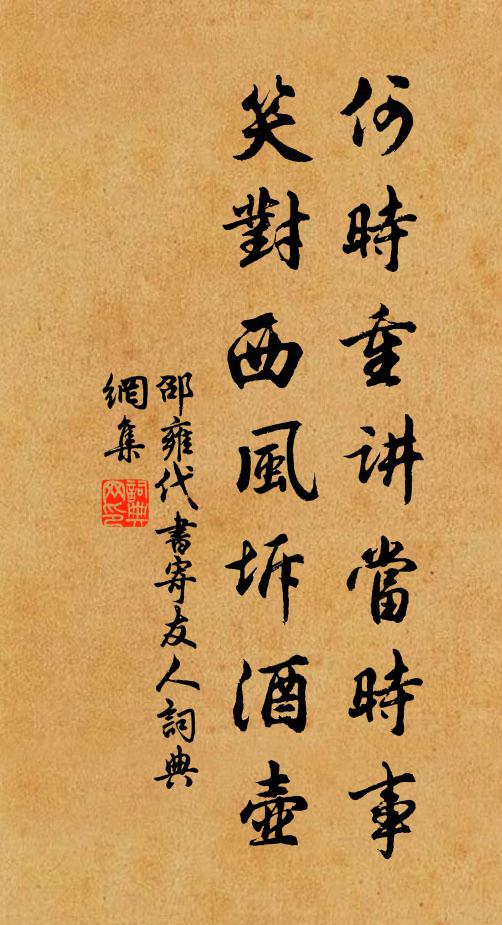 何時重讲當時事
笑對西風坼酒壺
邵雍代書寄友人詞典
網集
詞典
网印